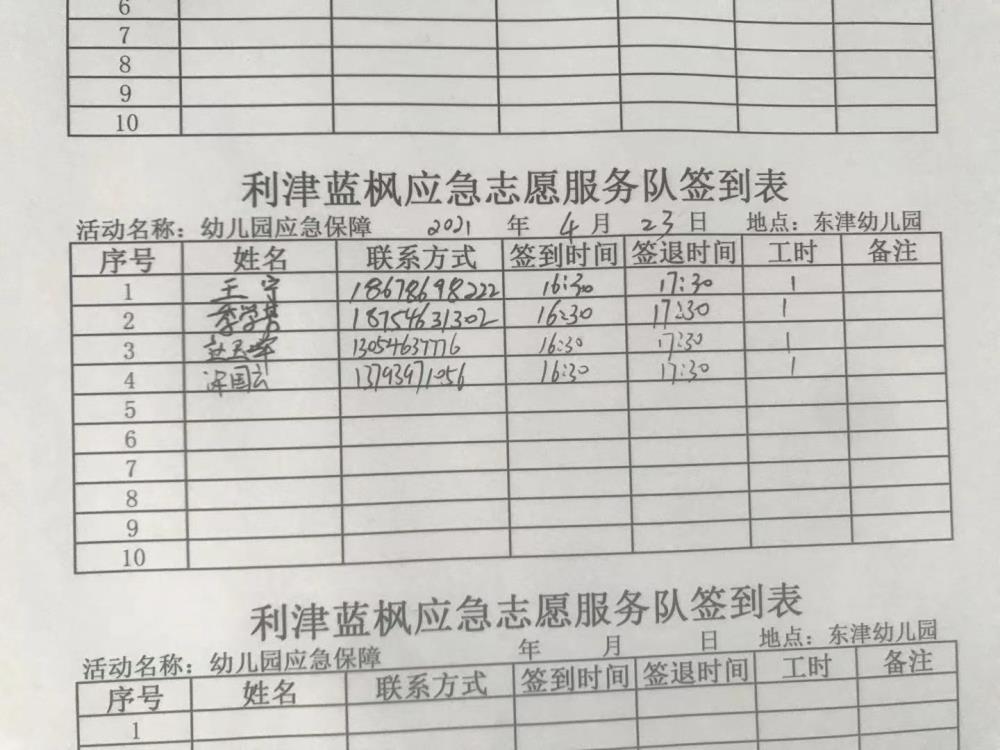 6
7
8
9
10
利津蓝枫应急志愿服务队签到表
活动名称：幼儿园应急保障 2021 年 4 月 23 日 地点：东津幼儿园
序号 姓名 联系方式 签到时间 签退时间 工时 备注
1 王宁 18678698222 16:30 17:30 1
2 18754631302 16:30 17:30 1
3 13054637776 16:30 17:30 1
4 国云 13793971056 16:30 17:30 1
5
6
7
8
9
10
利津蓝枫应急志愿服务队签到表
活动名称：幼儿园应急保障 年 月 日 地点：东津幼儿园
序号 姓名 联系方式 签到时间 签退时间 工时 备注
1